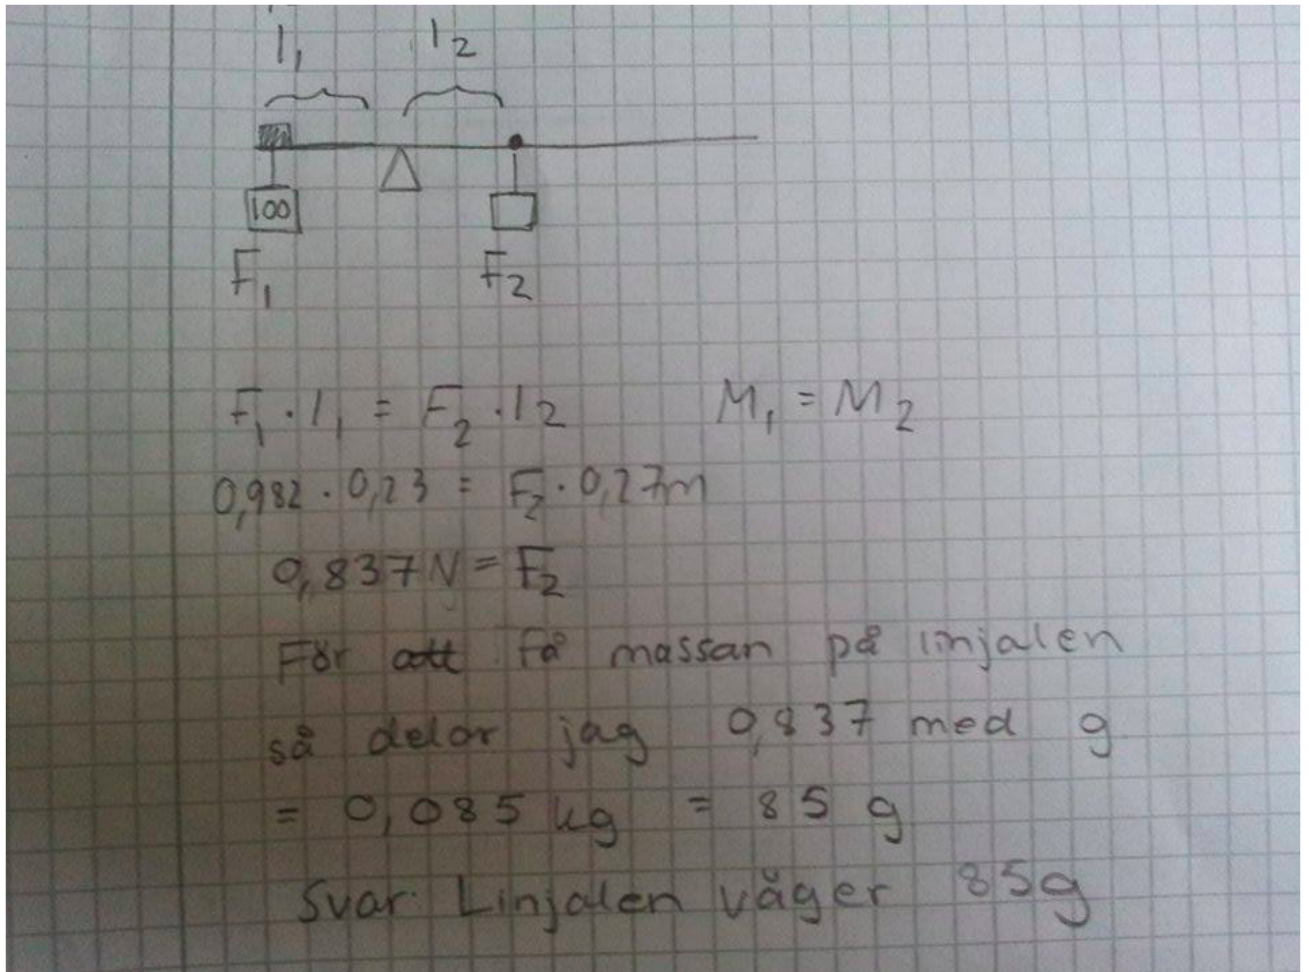 l₁ l₂
100
F₁ F₂
F₁ · l₁ = F₂ · l₂ M₁ = M₂
0,982 · 0,23 = F₂ · 0,27m
0,837 N = F₂
För att få massan på linjalen
så delar jag 0,837 med g
= 0,085 kg = 85 g
Svar: Linjalen väger 85g